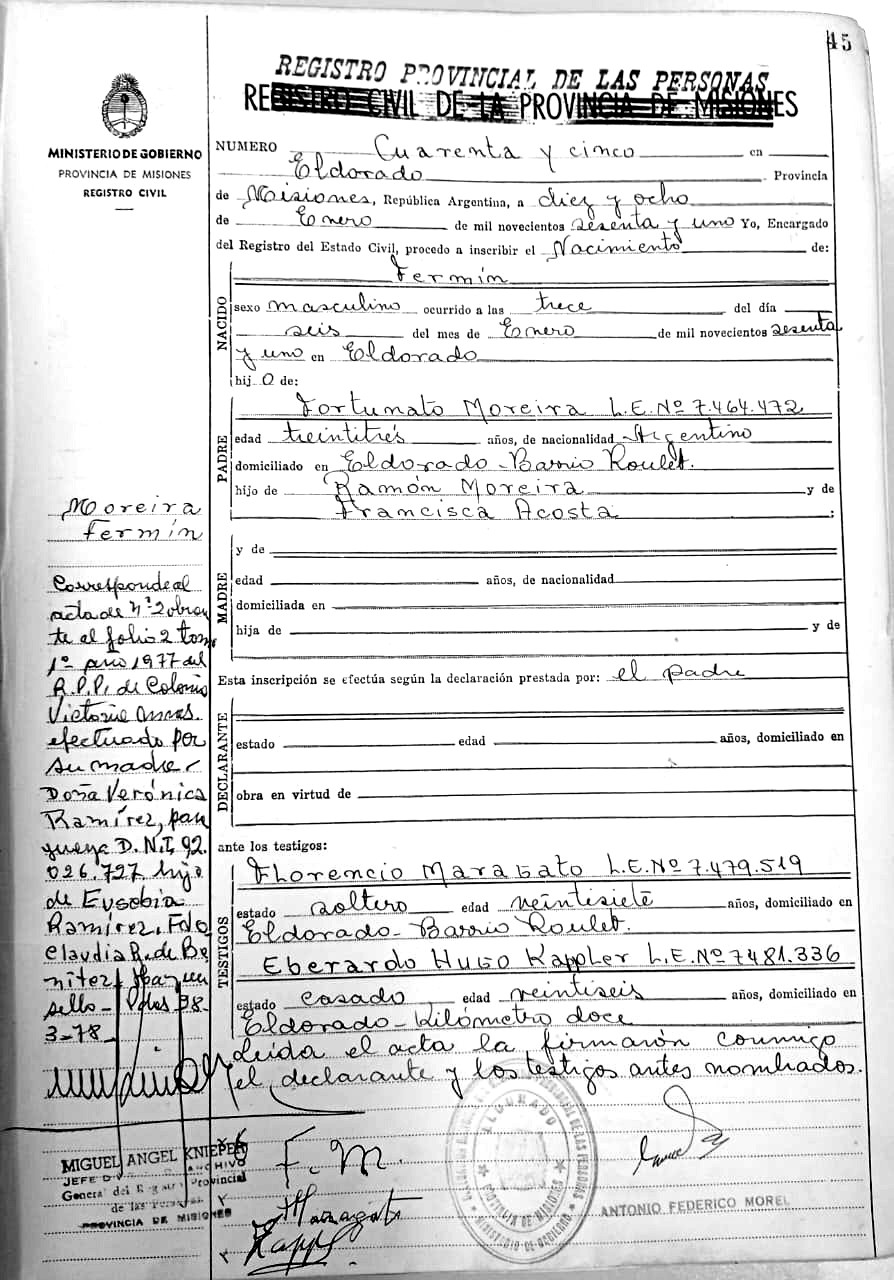 45
REGISTRO PROVINCIAL DE LAS PERSONAS
REGISTRO CIVIL DE LA PROVINCIA DE MISIONES
MINISTERIO DE GOBIERNO
PROVINCIA DE MISIONES
REGISTRO CIVIL
NUMERO Cuarenta y cinco en
Eldorado Provincia
de Misiones, República Argentina, a diez y ocho
de Enero de mil novecientos sesenta y uno Yo, Encargado
del Registro del Estado Civil, procedo a inscribir el Nacimiento de:
NACIDO
Fermín
sexo masculino ocurrido a las trece del día
seis del mes de Enero de mil novecientos sesenta
y uno en Eldorado
hijo de:
PADRE
Fortunato Moreira L.E. Nº 7.464.472
edad treintitrés años, de nacionalidad Argentino
domiciliado en Eldorado-Barrio Roulet.
hijo de Ramón Moreira y de
Francisca Acosta :
MADRE
y de
edad años, de nacionalidad
domiciliada en
hija de y de
Esta inscripción se efectúa según la declaración prestada por: el padre
DECLARANTE
estado edad años, domiciliado en
obra en virtud de
ante los testigos:
TESTIGOS
Florencio Maragato L.E. Nº 7.479.519
estado soltero edad veintisiete años, domiciliado en
Eldorado-Barrio Roulet.
Eberardo Hugo Kappler L.E. Nº 7481.336
estado casado edad veintiseis años, domiciliado en
Eldorado-Kilómetro doce
Leída el acta la firmarón conmigo
el declarante y los testigos antes nombrados.
Moreira
Fermín
Corresponde al
acta de Nº 2 obran
te al folio 2 tomo
1º año 1977 del
R.P.P. de Colonia
Victoria
efectuado por
su madre
Doña Verónica
Ramírez, para
guaya D.N.I. 92.
026.727 hija
de Eusobia
Ramírez. Fdo
Claudia R. de Be
nitez
sello- 28-
3-78
MIGUEL ANGEL KNIEPER
JEFE ARCHIVO
General del Registro Provincial
de las Personas
PROVINCIA DE MISIONES
F. M.
Maragato
Kapp
ELDORADO
PROVINCIA DE MISIONES
MINISTERIO DE GOBIERNO
ANTONIO FEDERICO MOREL